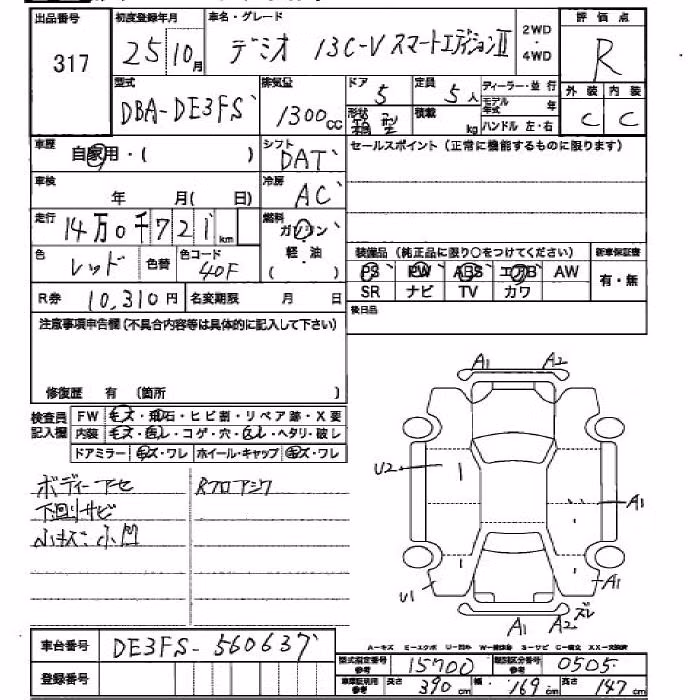 出品番号 初度登録年月 車名・グレード 2WD・4WD 評価点
317 25 10月 デミオ 13C-V スマートエディションⅡ R
型式 排気量 ドア 定員 ディーラー・並行 外装 内装
DBA-DE3FS 1300cc 5 5人 モデル年式 年 C C
形状 箱型 積載 kg ハンドル 左・右
車歴 自家用・( ) シフト DAT セールスポイント(正常に機能するものに限ります)
車検 年 月( 日) 冷房 AC
走行 14万0千721km 燃料 ガソリン
軽・油
( )
色 レッド 色替 色コード 40F 装備品(純正品に限り○をつけてください) 新車保証書
PS PW ABS エアB AW 有・無
R券 10,310円 名変期限 月 日 SR ナビ TV カワ
注意事項申告欄(不具合内容等は具体的に記入して下さい) 後日品
修復歴 有 (箇所 )
検査員記入欄 FW キズ・飛石・ヒビ割・リペア跡・X要
内装 キズ・汚レ・コゲ・穴・ヘタリ・破レ
ドアミラー キズ・ワレ ホイール・キャップ キズ・ワレ
A1 A2
ボディーアセ
下回りサビ
小キズ、小凹
U2 A1
U1 A1
A1 A2 ズレ
車台番号 DE3FS-560637
登録番号
A-キズ E-エクボ U-凹み S-サビ C-腐立
型式指定番号 参考 15700 類別区分番号 参考 0505
参考 長さ 390cm 幅 169cm 高さ 147cm